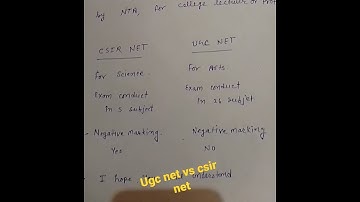 by NTA, for college lecturer or Prof
CSIR NET UGC NET
For Science. For Arts.
Exam conduct Exam conduct
In 5 subject In 26 subject
- Negative marking. Negative marking
Yes NO
I hope understand
Ugc net vs csir
net